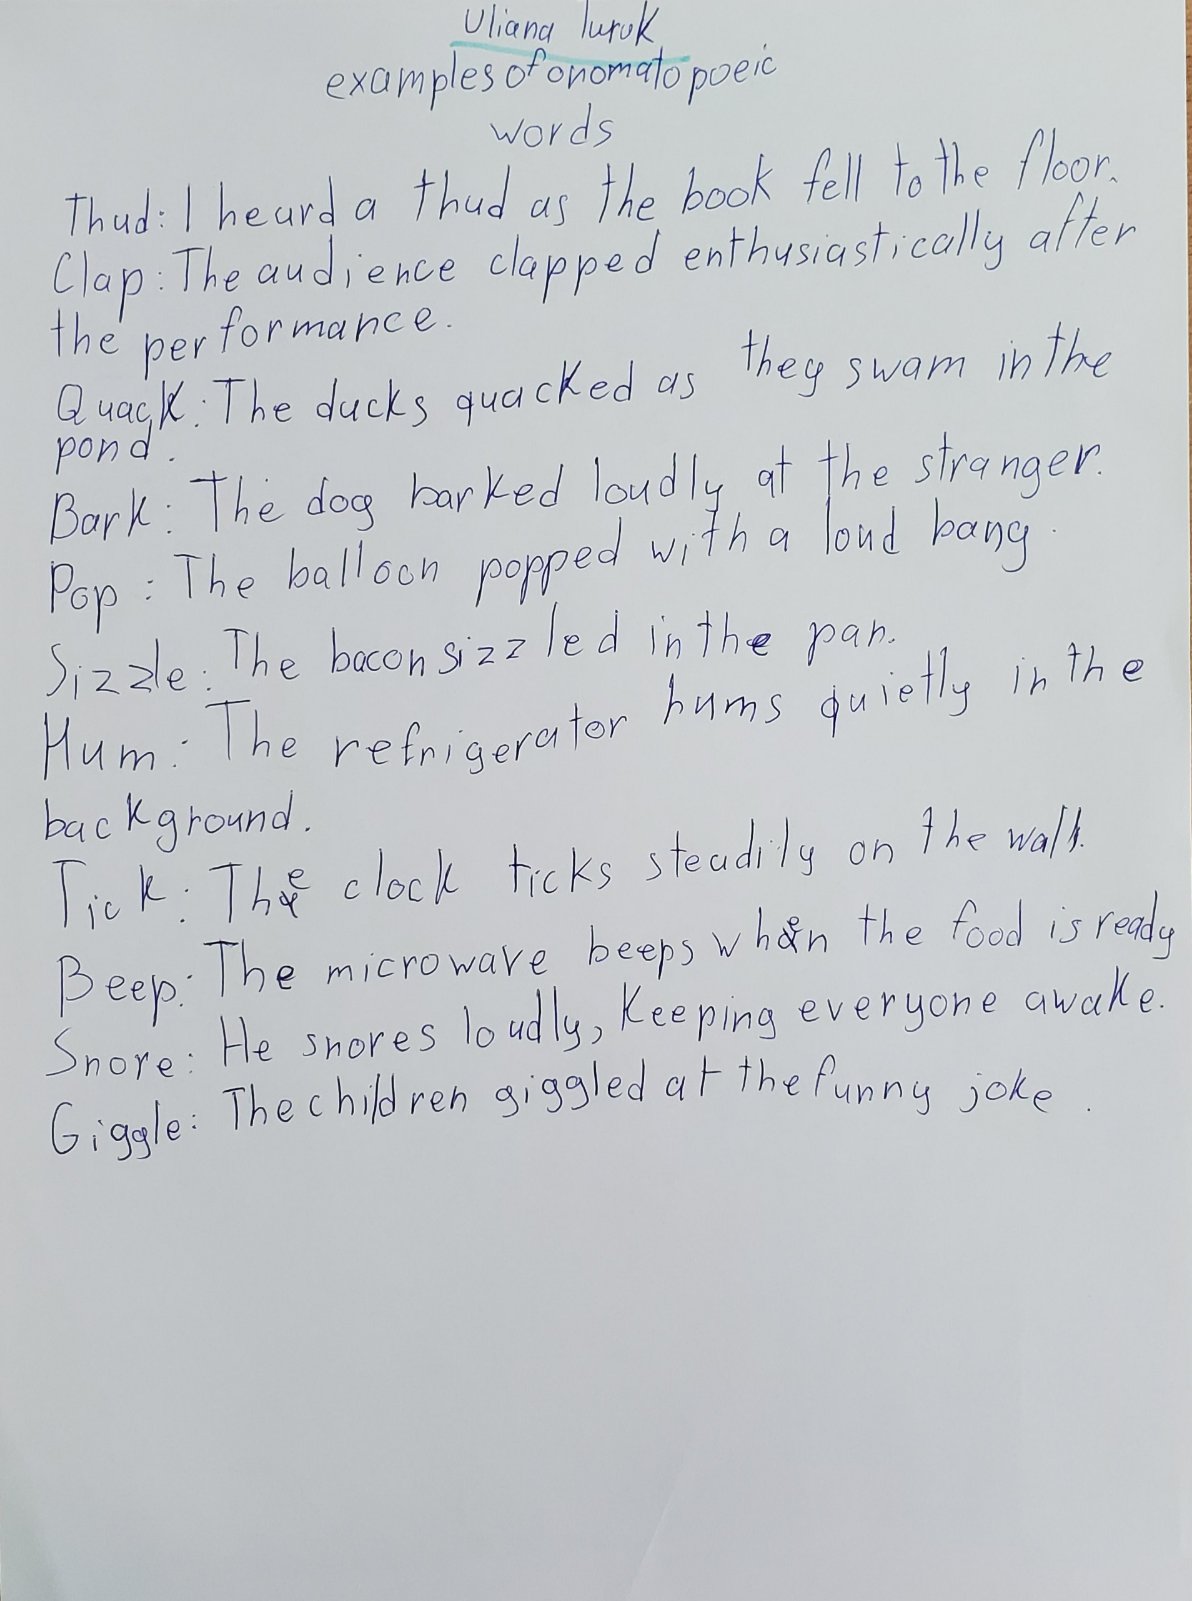 Uliana Iuruk
examples of onomatopoeic
words
Thud: I heard a thud as the book fell to the floor.
Clap: The audience clapped enthusiastically after
the performance.
Quack: The ducks quacked as they swam in the
pond.
Bark: The dog barked loudly at the stranger.
Pop: The balloon popped with a loud bang.
Sizzle: The bacon sizzled in the pan.
Hum: The refrigerator hums quietly in the
background.
Tick: The clock ticks steadily on the wall.
Beep: The microwave beeps when the food is ready
Snore: He snores loudly, keeping everyone awake.
Giggle: The children giggled at the funny joke.